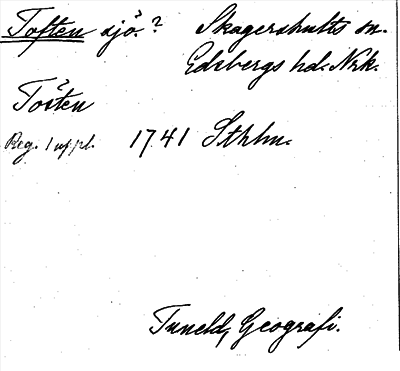 Toften sjö? Skagershults sn.
Edsbergs hd. Nrk.
Tosten
Reg. 1 uppl. 1741 Sthlm.
Tuneld, Geografi.